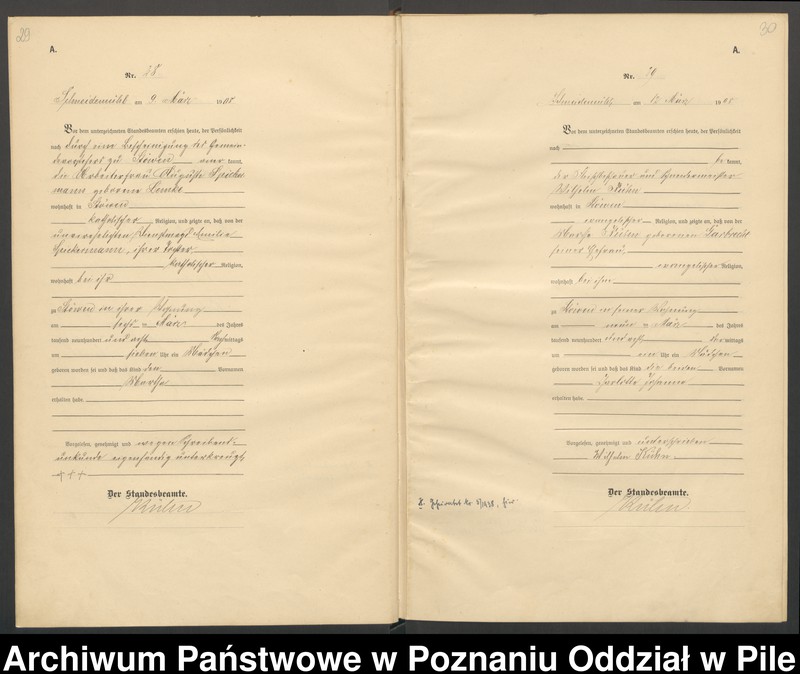 29
A.
Nr. 28
Schneidemühl am 9 März 1908
Vor dem unterzeichneten Standesbeamten erschien heute, der Persönlichkeit
nach durch eine Bescheinigung des Gemein-
devorstehers zu Stöwen kannt,
die Arbeiterfrau Auguste
mann geborene Lemke
wohnhaft in Stöwen
katholischer Religion, und zeigte an, daß von der
unverehelichten Dienstmagd Emilie
ihrer Tochter
katholischer Religion,
wohnhaft bei ihr
zu Stöwen in ihrer Wohnung
am sechs ten März des Jahres
tausend neunhundert und acht mittags
um sieben Uhr ein Mädchen
geboren worden sei und daß das Kind den Vornamen
Martha
erhalten habe.
Vorgelesen, genehmigt und wegen Schreibens-
unkunde eigenhändig unterkreuzt
+++
Der Standesbeamte.
30
A.
Nr.
Schneidemühl am 12 März 1908
Vor dem unterzeichneten Standesbeamten erschien heute, der Persönlichkeit
nach
be kannt,
der
Wilhelm
wohnhaft in Stöwen
evangelischer Religion, und zeigte an, daß von der
geborenen
seiner Ehefrau
evangelischer Religion,
wohnhaft bei ihm
zu Stöwen in seiner Wohnung
am neun ten März des Jahres
tausend neunhundert und acht mittags
um ein Uhr ein Mädchen
geboren worden sei und daß das Kind die beiden Vornamen
Charlotte Johanna
erhalten habe.
Vorgelesen, genehmigt und unterschrieben
Wilhelm
Der Standesbeamte.
Archiwum Państwowe w Poznaniu Oddział w Pile